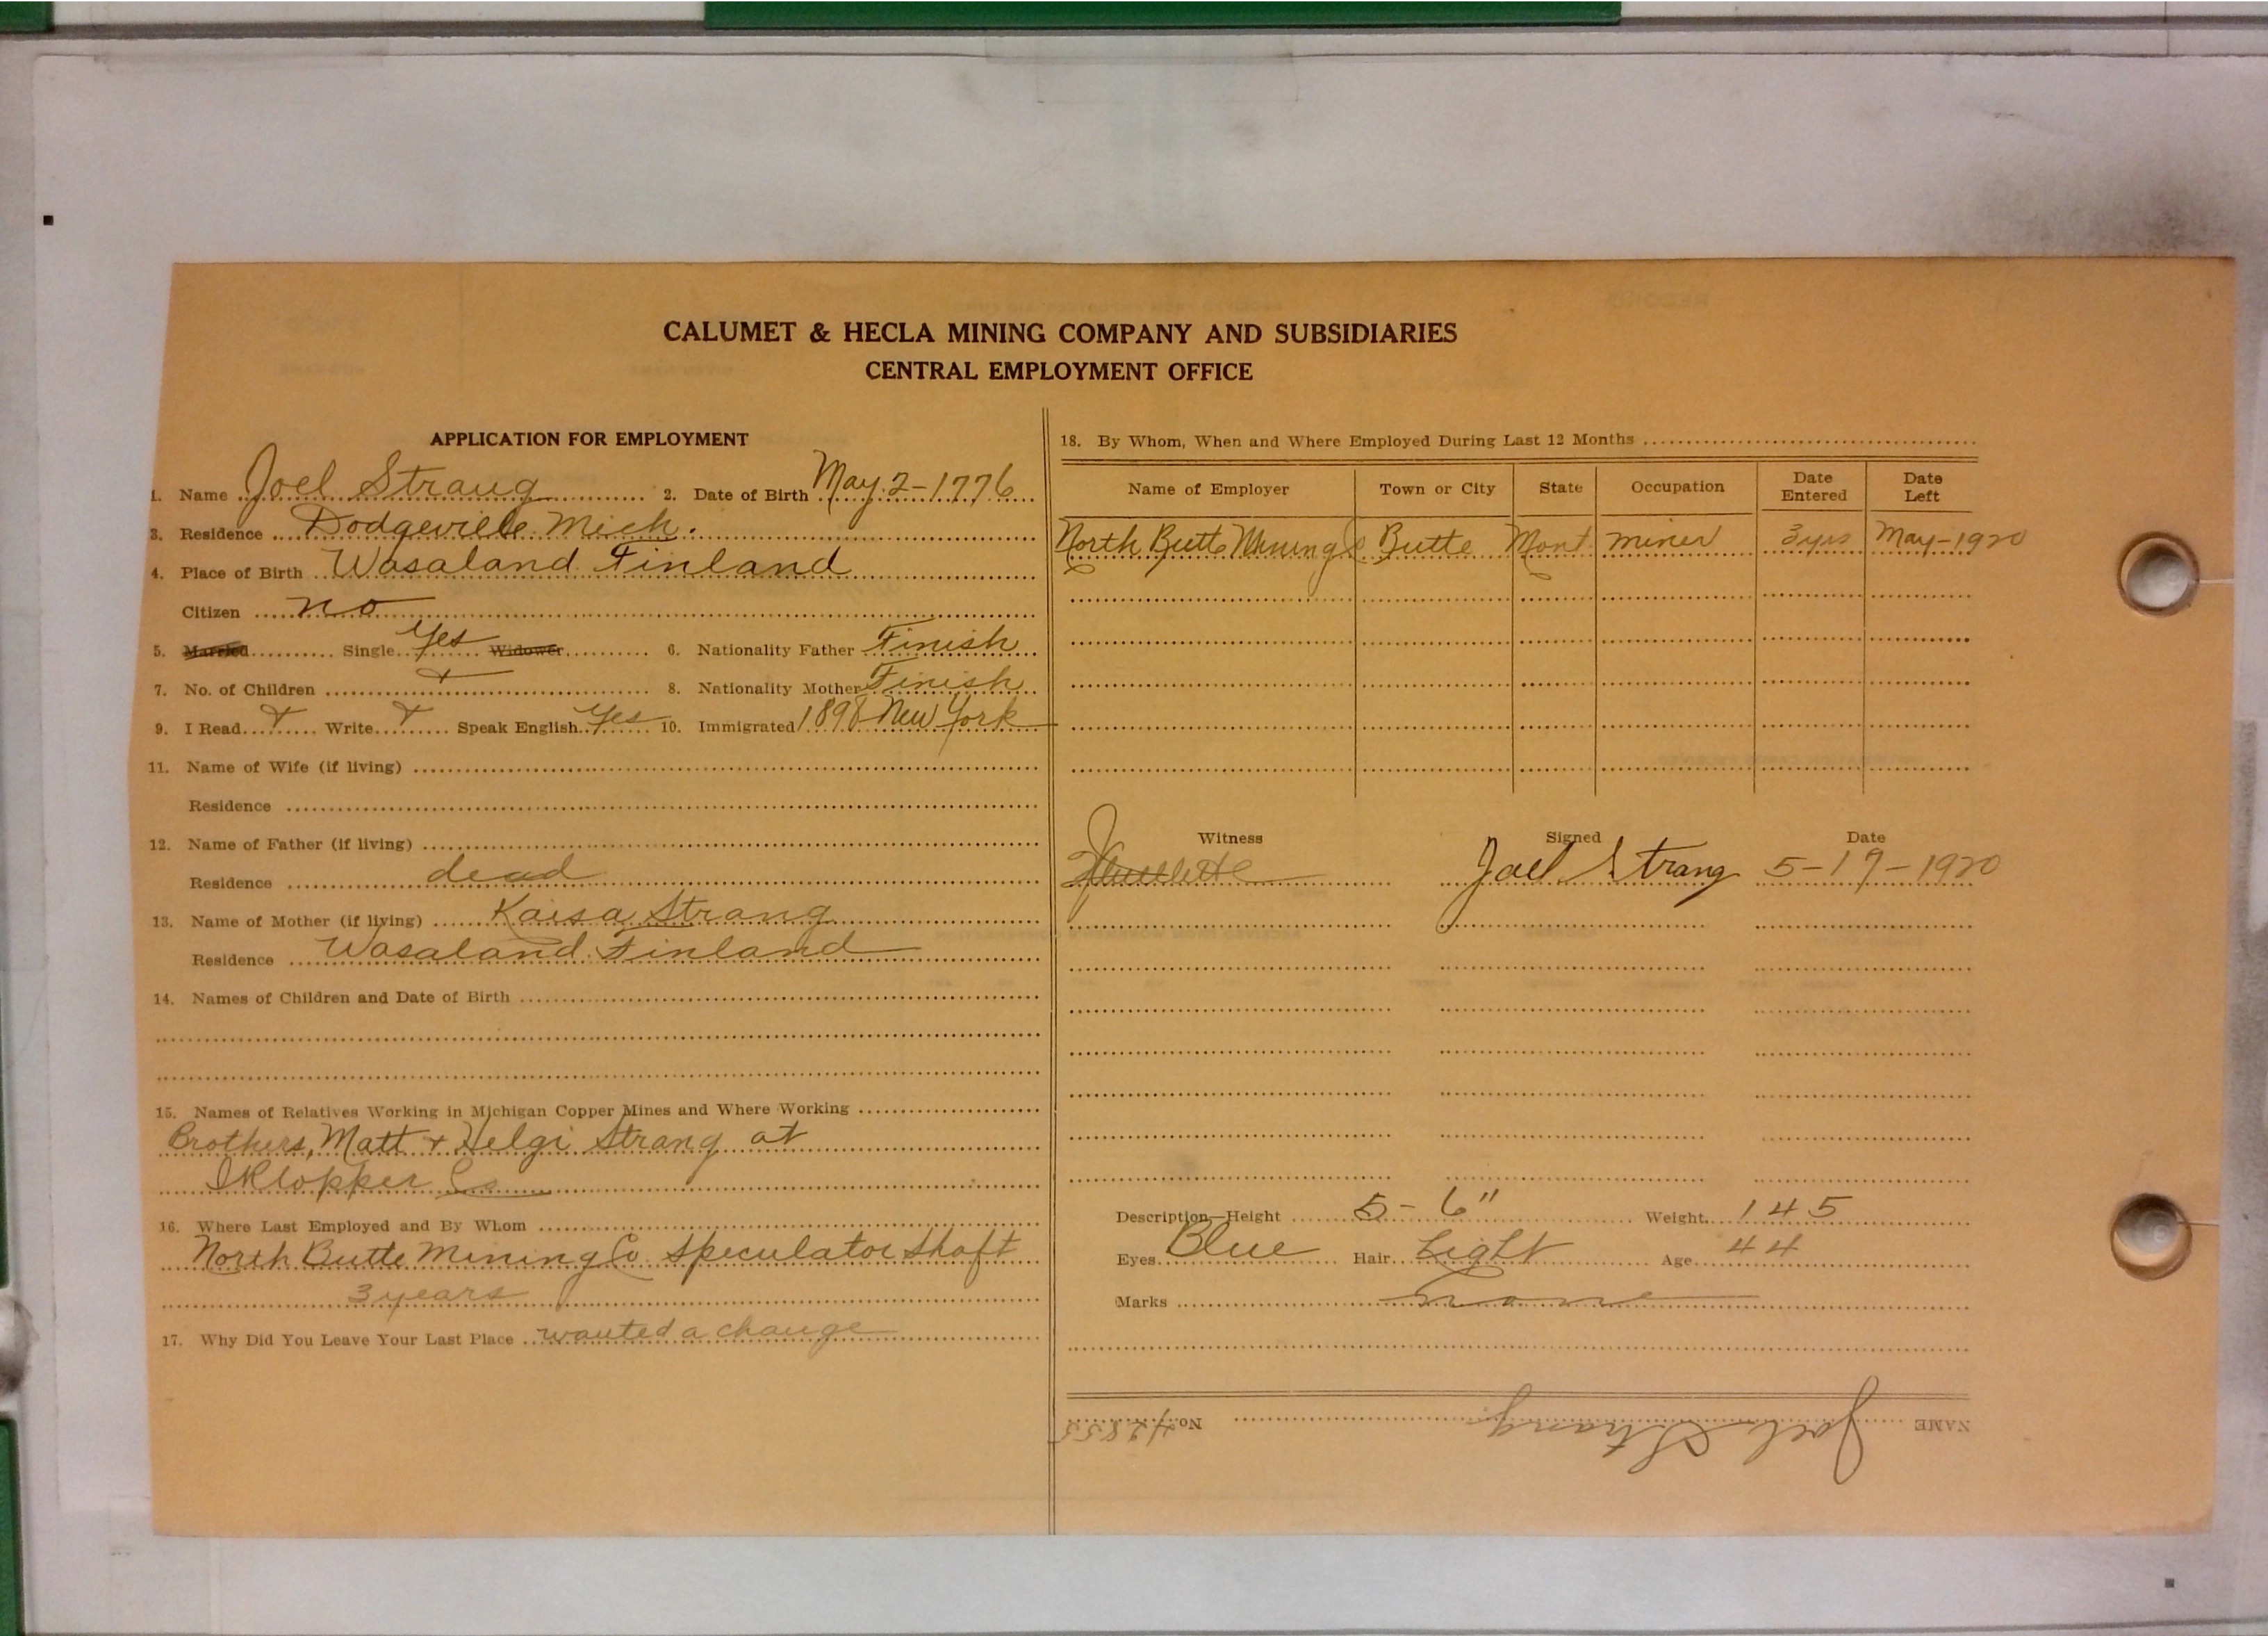 CALUMET & HECLA MINING COMPANY AND SUBSIDIARIES
CENTRAL EMPLOYMENT OFFICE
APPLICATION FOR EMPLOYMENT
1. Name Joel Strang 2. Date of Birth May 2-1776
3. Residence Dodgeville Mich.
4. Place of Birth Wasaland Finland
Citizen no
5. Married Single Yes Widower 6. Nationality Father Finish
7. No. of Children + 8. Nationality Mother Finish
9. I Read + Write + Speak English Yes 10. Immigrated 1898 New York
11. Name of Wife (if living)
Residence
12. Name of Father (if living)
Residence dead
13. Name of Mother (if living) Kaisa Strang
Residence Wasaland Finland
14. Names of Children and Date of Birth
15. Names of Relatives Working in Michigan Copper Mines and Where Working
Brothers, Matt + Helgi Strang at
Co
16. Where Last Employed and By Whom
North Butte Mining Co. Speculator Shaft
3 years
17. Why Did You Leave Your Last Place wanted a change
18. By Whom, When and Where Employed During Last 12 Months
Name of Employer Town or City State Occupation Date Entered Date Left
North Butte Mining Co Butte Mont. miner 3 yrs May-1920
Witness Signed Date
Joel Strang 5-19-1920
Description—Height 5-6" Weight 145
Eyes Blue Hair Light Age 44
Marks none
NAME Joel Strang No. 42855